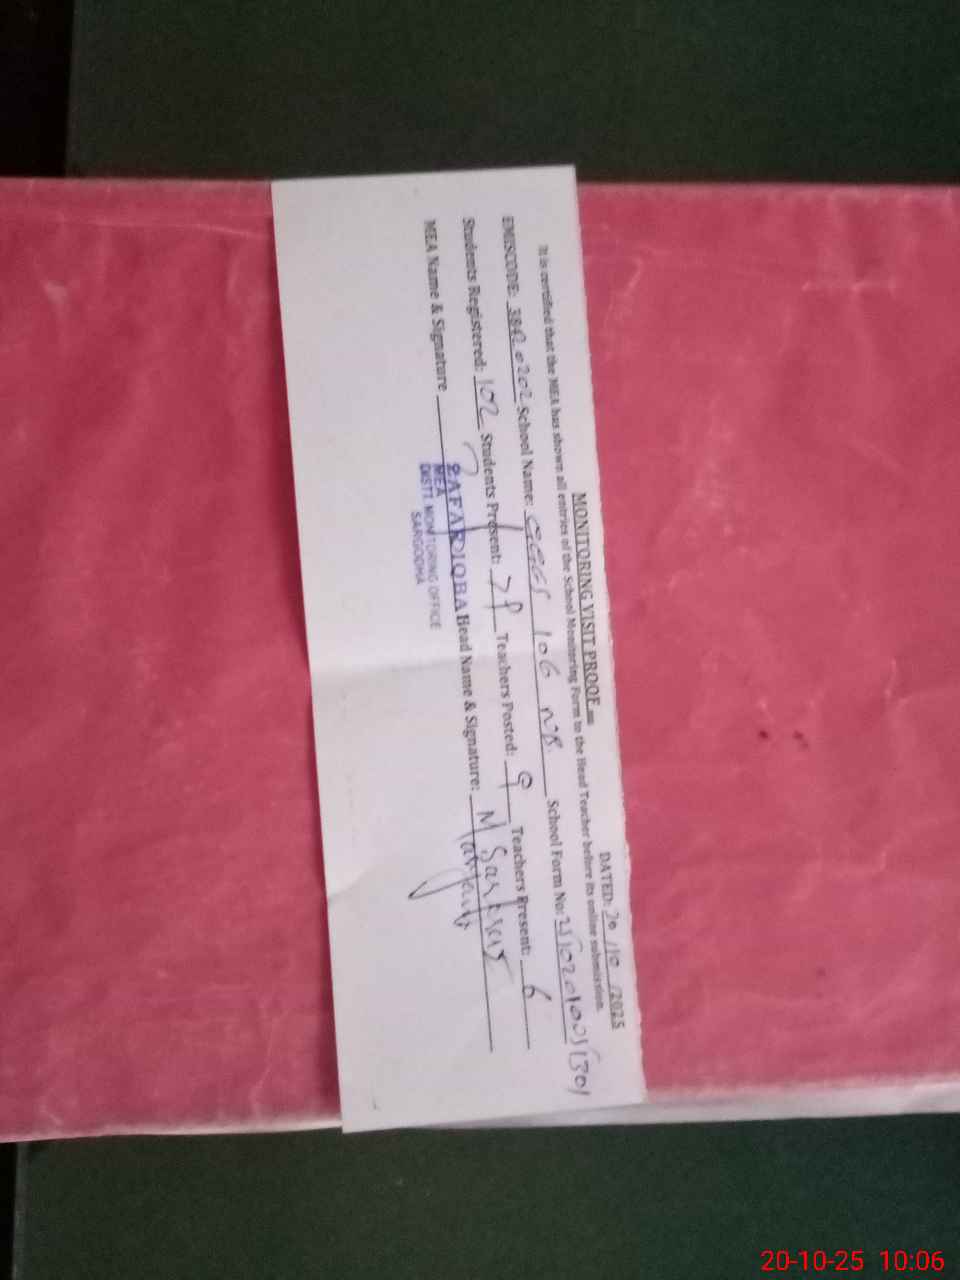 MONITORING VISIT PROOF
DATED: 20/10/2025
It is certified that the MEA has shown all entries of the School Monitoring Form to the Head Teacher before its online submission.
EMISCODE: School Name: GGES 106 NB School Form No:
Students Registered: 102 Students Present: Teachers Posted: 9 Teachers Present: 6
MEA Name & Signature ZAFAR IQBAL Head Name & Signature: M Sarfraz
MEA
DISTT. MONITORING OFFICE
SARGODHA
20-10-25 10:06